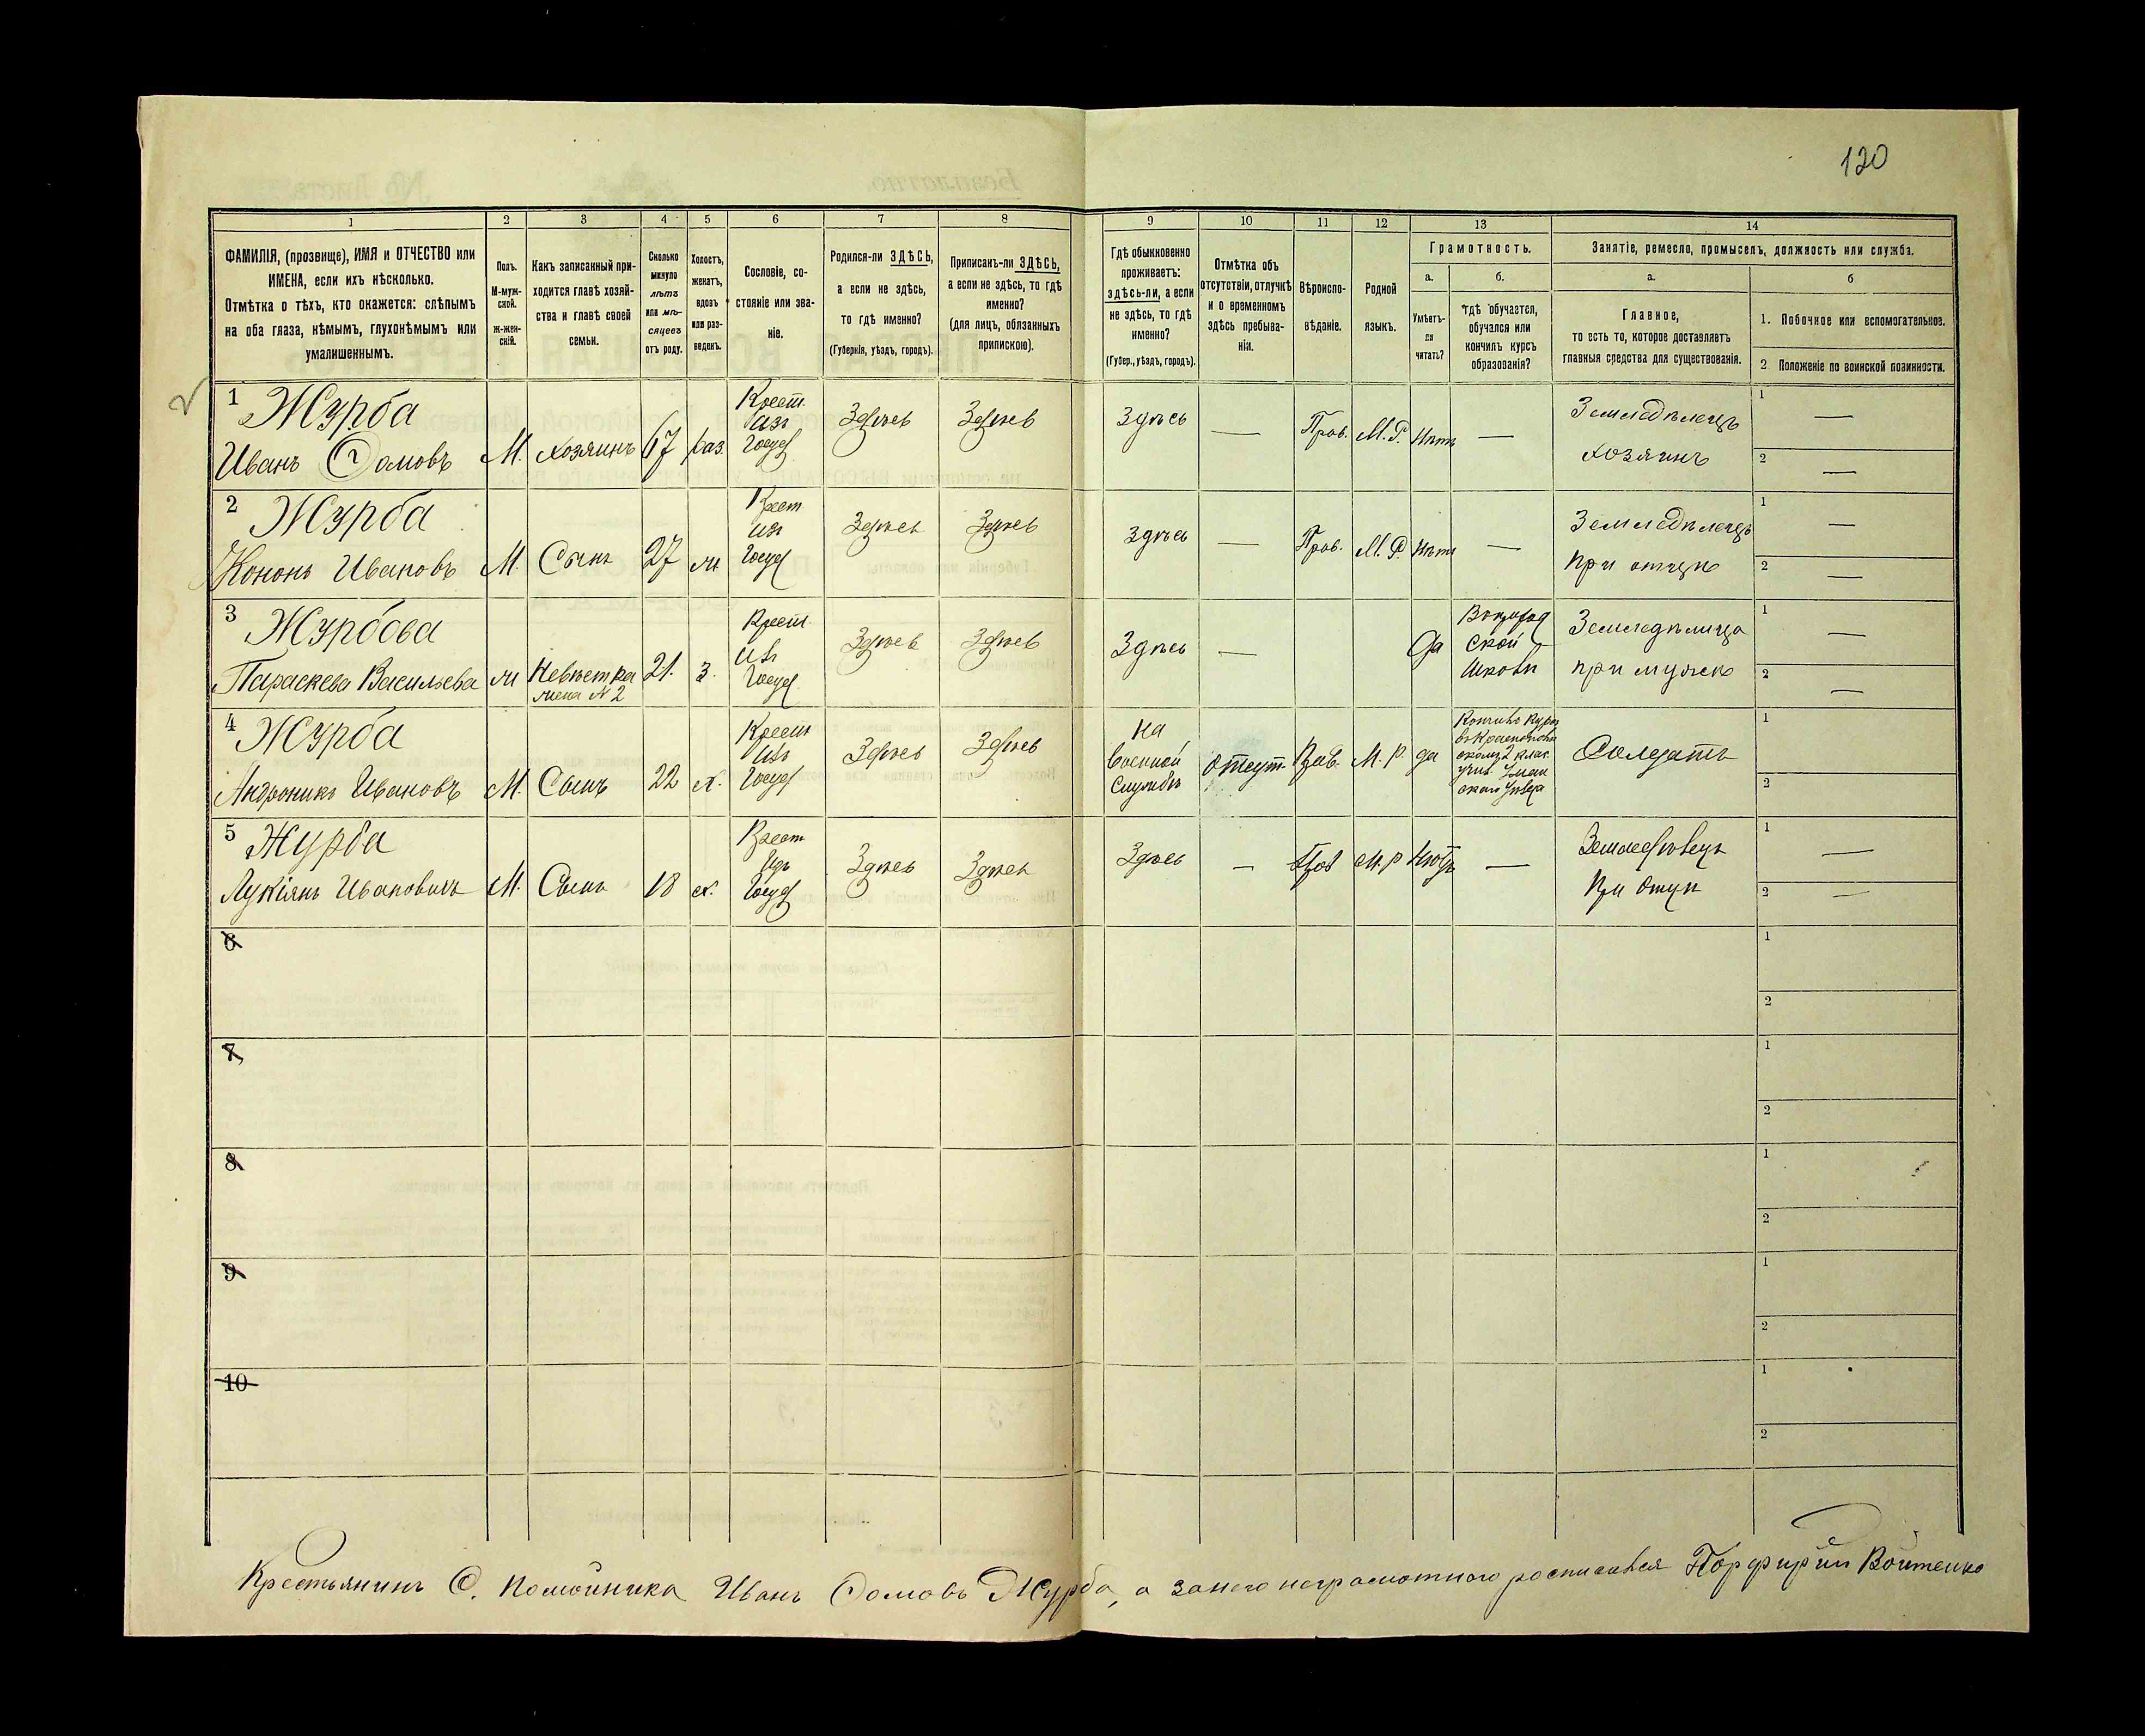 120
1
2
3
4
5
6
7
8
9
10
11
12
13
14
ФАМИЛІЯ, (прозвище), ИМЯ и ОТЧЕСТВО или
ИМЕНА, если ихъ нѣсколько.
Отмѣтка о тѣхъ, кто окажется: слѣпымъ
на оба глаза, нѣмымъ, глухонѣмымъ или
умалишеннымъ.
Полъ.
М-муж-
ской.
ж-жен-
скій.
Какъ записанный при-
ходится главѣ хозяй-
ства и главѣ своей
семьи.
Сколько
минуло
лѣтъ
или мѣ-
сяцевъ
отъ роду.
Холостъ,
женатъ,
вдовъ
или раз-
веденъ.
Сословіе, со-
стояніе или зва-
ніе.
Родился-ли ЗДѢСЬ,
а если не здѣсь,
то гдѣ именно?
(Губернія, уѣздъ, городъ).
Приписанъ-ли ЗДѢСЬ,
а если не здѣсь, то гдѣ
именно?
(для лицъ, обязанныхъ
припискою).
Гдѣ обыкновенно
проживаетъ:
здѣсь-ли, а если
не здѣсь, то гдѣ
именно?
(Губер., уѣздъ, городъ).
Отмѣтка объ
отсутствіи, отлучкѣ
и о временномъ
здѣсь пребыва-
ніи.
Вѣроиспо-
вѣданіе.
Родной
языкъ.
Грамотность.
а.
б.
Умѣетъ-
ли
читать?
гдѣ обучается,
обучался или
кончилъ курсъ
образованія?
Занятіе, ремесло, промыселъ, должность или служба.
а.
б
Главное,
то есть то, которое доставляетъ
главныя средства для существованія.
1. Побочное или вспомогательное.
2 Положеніе по воинской повинности.
1 Журба
Иванъ Ѳомовъ
М.
Хозяинъ
67
раз.
Крест.
изъ
Госуд
Здѣсь
Здѣсь
Здѣсь
—
Прав.
М.Р.
Нѣтъ
—
Земледѣлецъ
хозяинъ
1 —
2 —
2 Журба
Кононъ Ивановъ
М.
Сынъ
27
ж
Крест
изъ
Госуд
Здѣсь
Здѣсь
Здѣсь
—
Прав.
М.Р.
Нѣтъ
—
Земледѣлецъ
при отцѣ
1 —
2 —
3 Журбова
Параскева Васильева
ж
Невѣстка
жена № 2
21.
з.
Крест.
изъ
Госуд.
Здѣсь
Здѣсь
Здѣсь
—
Да
ской
Школѣ
Земледѣлица
при мужѣ
1 —
2 —
4 Журба
Андроникъ Ивановъ
М.
Сынъ
22
х.
Крест
изъ
Госуд
Здѣсь
Здѣсь
На
военной
службѣ
Отсут.
Прав.
М.Р.
да
Солдатъ
1
2
5 Журба
Лукіянъ Ивановичъ
М.
Сынъ
18
х.
Крест
Изъ
Госуд
Здѣсь
Здѣсь
Здѣсь
—
Прав
М.Р
Нѣтъ
—
Земледѣлецъ
При Отцѣ
1 —
2 —
6
1
2
7
1
2
8
1
2
9
1
2
10
1
2
Крестьянинъ С. Помойника Иванъ Ѳомовъ Журба, а за него неграмотного росписался Порфирій Войтенко